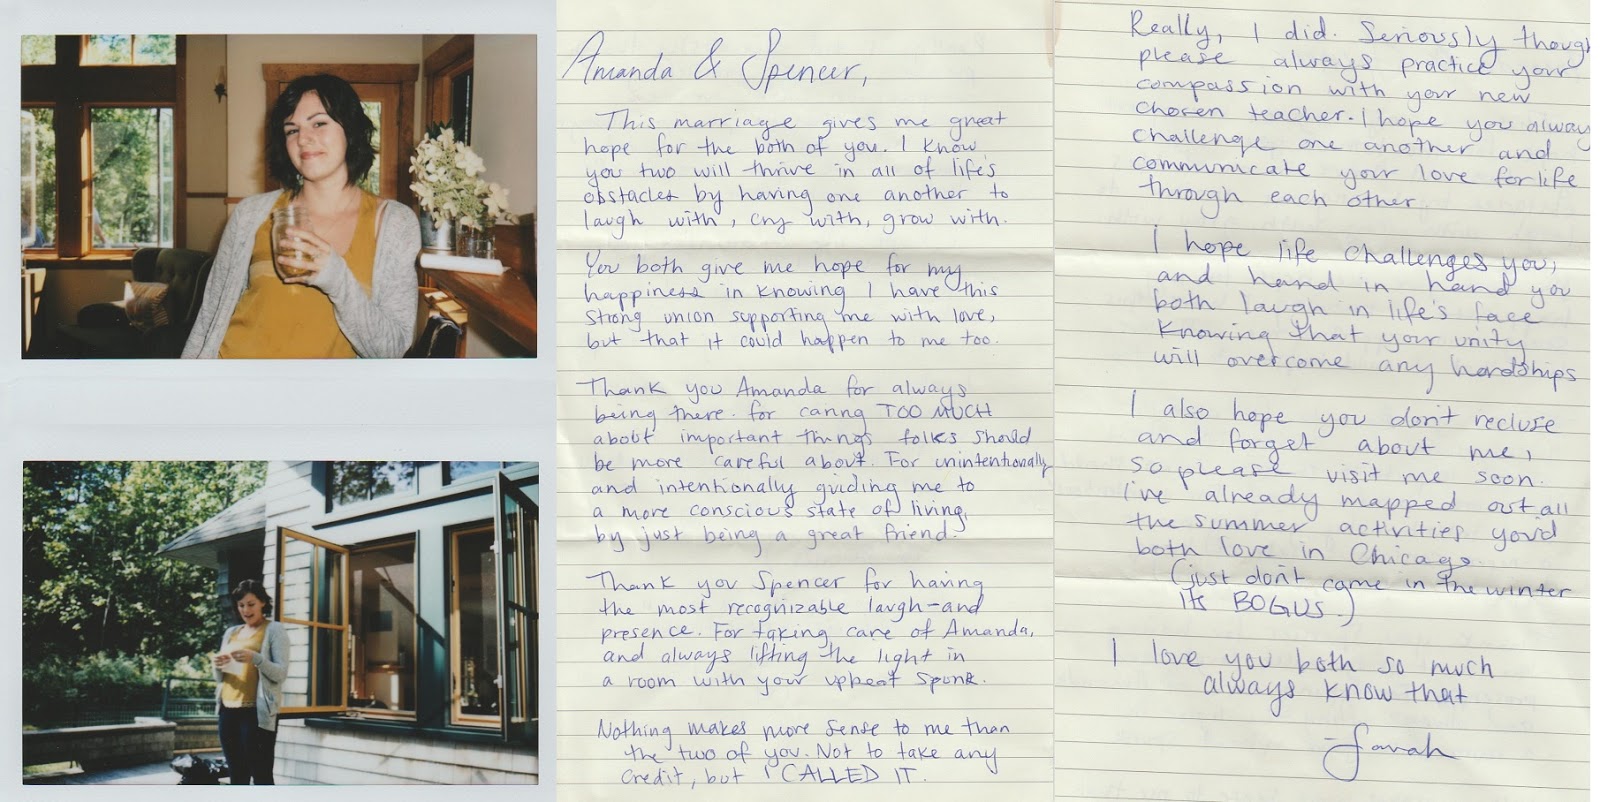 Amanda & Spencer,
This marriage gives me great
hope for the both of you. I know
you two will thrive in all of life's
obstacles by having one another to
laugh with, cry with, grow with.
You both give me hope for my
happiness in knowing I have this
strong union supporting me with love,
but that it could happen to me too.
Thank you Amanda for always
being there. for caring TOO MUCH
about important things folks should
be more careful about. For unintentionally
and intentionally guiding me to
a more conscious state of living,
by just being a great friend.
Thank you Spencer for having
the most recognizable laugh-and
presence. For taking care of Amanda,
and always lifting the light in
a room with your upbeat spunk.
Nothing makes more sense to me than
the two of you. Not to take any
credit, but I CALLED IT.
Really, I did. Seriously though
please always practice your
compassion with your new
chosen teacher. I hope you always
challenge one another and
communicate your love for life
through each other.
I hope life challenges you,
and hand in hand you
both laugh in life's face
knowing that your unity
will overcome any hardships
I also hope you don't recluse
and forget about me,
so please visit me soon.
I've already mapped out all
the summer activities you'd
both love in Chicago.
(just don't come in the winter
its BOGUS.)
I love you both so much
always know that
-Sarah